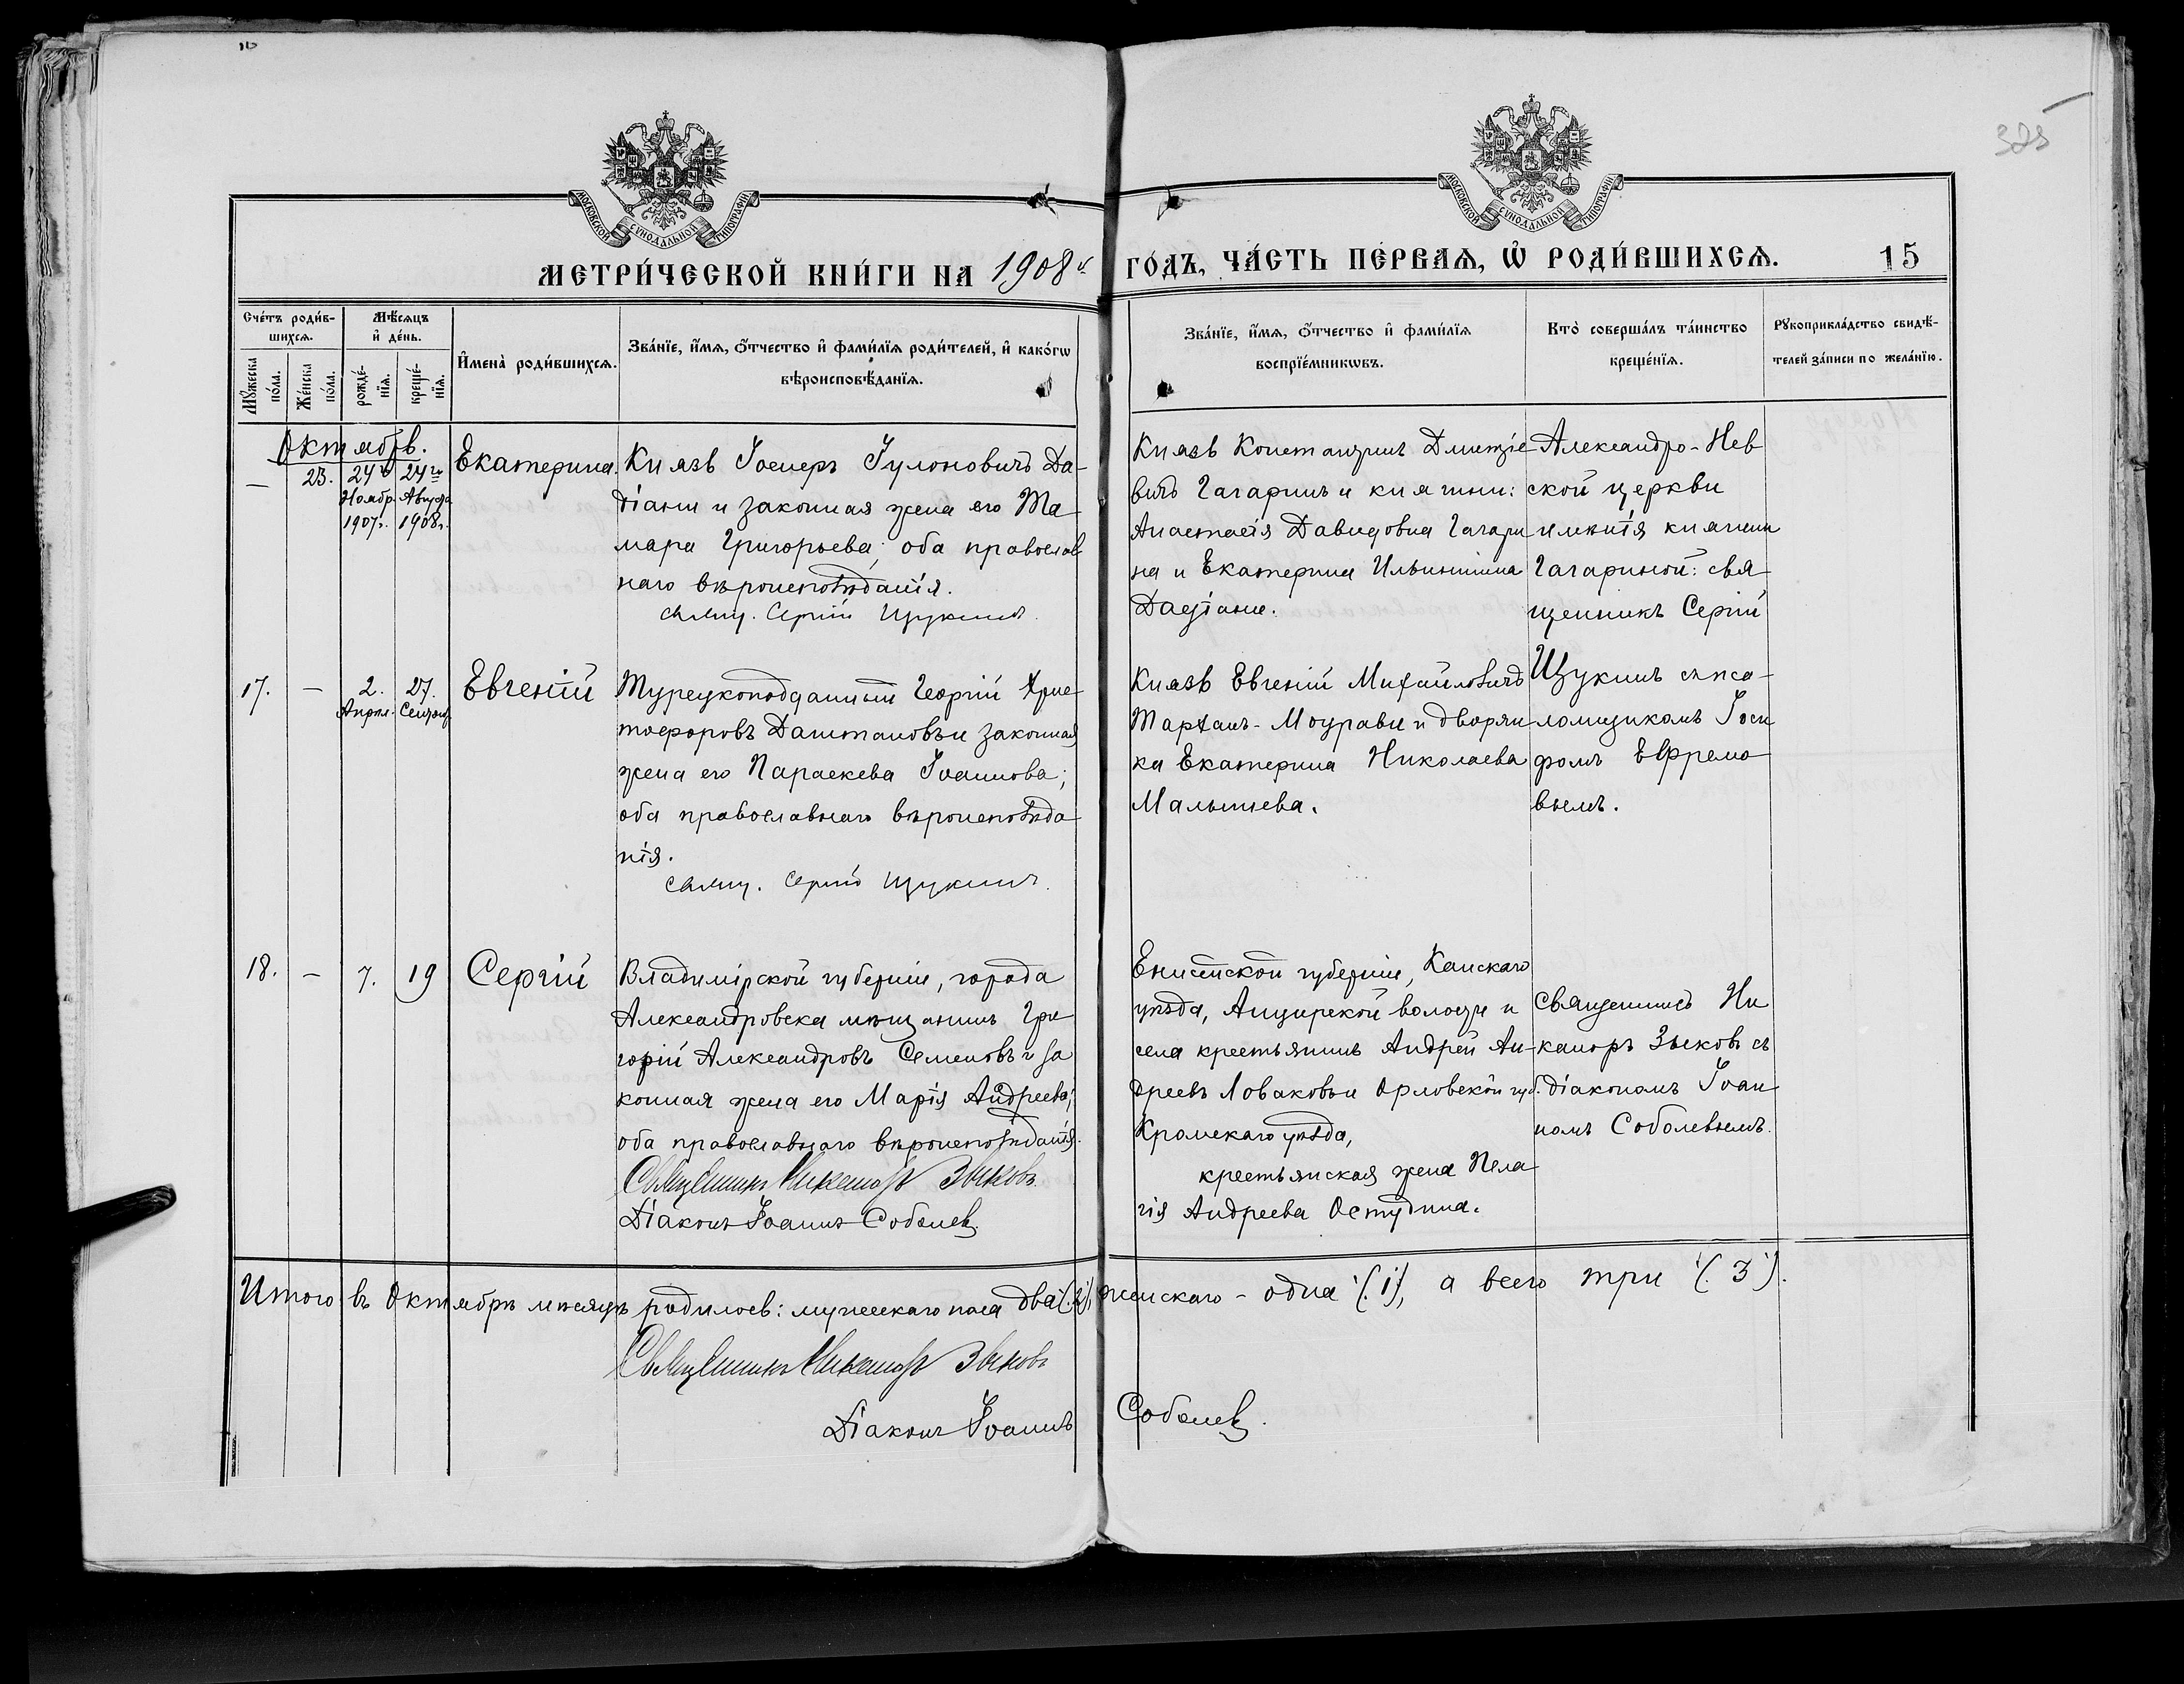 325
МОСКОВСКОЙ СУНОДАЛЬНОЙ ТИПОГРАФІИ
МОСКОВСКОЙ СУНОДАЛЬНОЙ ТИПОГРАФІИ
МЕТРИ́ЧЕСКОЙ КНИ́ГИ НА 1908й ГО́ДЪ, ЧА́СТЬ ПЕ́РВАѦ, Ѽ РОДИ́ВШИХСѦ. 15
Сче́тъ роди́в-
шихсѧ.
Мѣ́сѧцъ
и҆ де́нь.
Мꙋ́жеска
по́ла.
Же́нска
по́ла.
рожде́-
нїѧ.
креще́-
нїѧ.
И҆мена̀ роди́вшихсѧ.
Зва́нїе, и҆́мѧ, ѻ҆́тчество и҆ фами́лїѧ роди́телей, и҆ како́гѡ
вѣроисповѣ́данїѧ.
Зва́нїе, и҆́мѧ, ѻ҆́тчество и҆ фами́лїѧ
воспрїе́мникѡвъ.
Кто̀ соверша́лъ та́инство
креще́нїѧ.
Рꙋкоприкла́дство свидѣ́-
телей за́писи по жела́нїю.
Октябрь.
— 23. 24го 24го Екатерина.
Ноябр. Августа
1907г. 1908г.
Князь Іосперъ Гулоновичъ Да-
діани и законная жена его Та
мара Григорьева; оба православ
наго вѣроисповѣданія.
свящ. Сергій Щукинъ.
Князь Константинъ Дмитріе
вичъ Гагаринъ и княгини:
Анастасія Давидовна Гагари
на и Екатерина Ильинишна
Дадіани.
Александро-Нев
ской церкви
имѣнія княгини
Гагариной: свя
щенникъ Сергій
Щукинъ съ пса-
ломщикомъ Іоси
фомъ Ефремо
вымъ.
17. — 2. 27. Евгеній
Апрѣл. Сентяб.
Турецкоподданный Георгій Хрис
тофоровъ Даштановъ и законная
жена его Параскева Іоаннова;
оба православнаго вѣроисповѣда
нія.
свящ. Сергій Щукинъ.
Князь Евгеній Михайловичъ
Тарханъ-Моурави и дворян
ка Екатерина Николаева
Малышева.
18. — 7. 19 Сергій
Владимірской губерніи, города
Александровска мѣщанинъ Гри
горій Александровъ Семеновъ и за
конная жена его Марія Андреева;
оба православнаго вѣроисповѣданія.
Священникъ Никаноръ Зыковъ.
Діаконъ Іоаннъ Соболев.
Енисейской губерніи, Канскаго
уѣзда, Анцирской волости и
села крестьянинъ Андрей Ан-
дреевъ Ловаковъ и Орловской губ.
Кромскаго уѣзда,
крестьянская жена Пела
гія Андреева Остудина.
Священникъ Ни
каноръ Зыковъ съ
діакономъ Іоан
номъ Соболевымъ.
Итого въ Октябрѣ мѣсяцѣ родилось: мужескаго пола два (2), женскаго - одна (1), а всего три (3).
Священникъ Никаноръ Зыковъ
Діаконъ Іоаннъ Соболев.